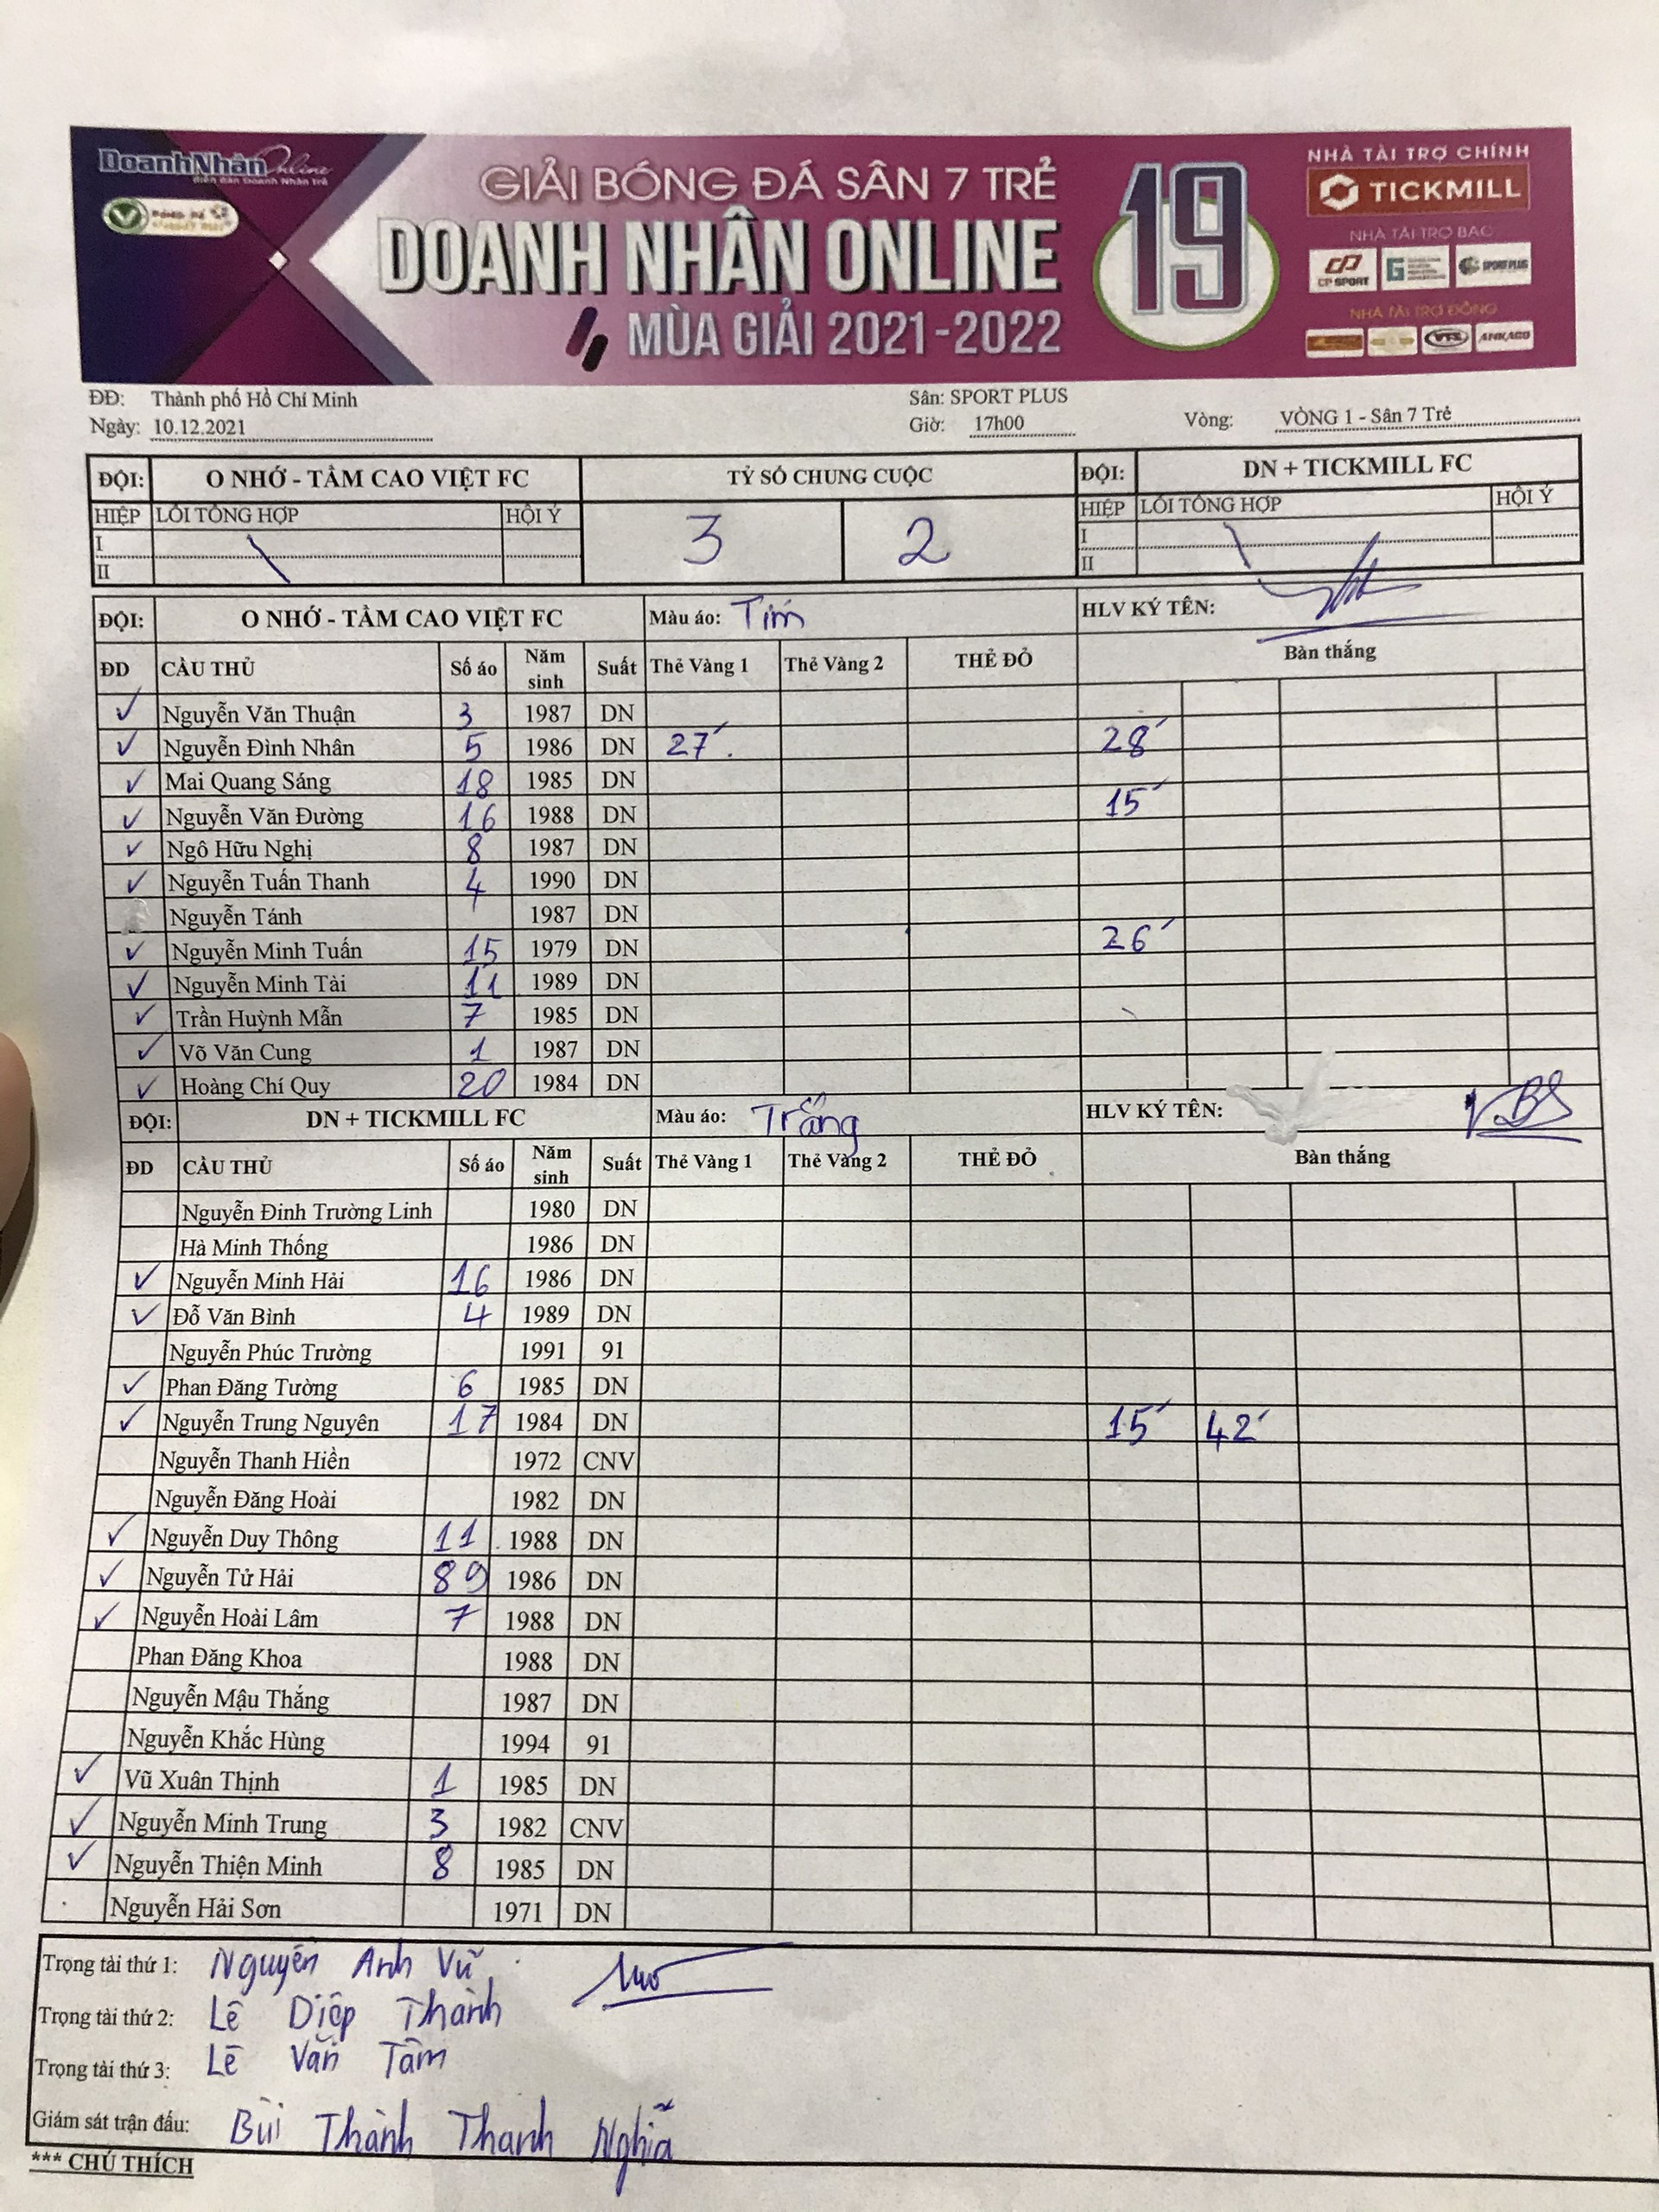 DoanhNhân Online
diễn đàn Doanh Nhân trẻ
GIẢI BÓNG ĐÁ SÂN 7 TRẺ
DOANH NHÂN ONLINE
MÙA GIẢI 2021-2022
19
NHÀ TÀI TRỢ CHÍNH
TICKMILL
NHÀ TÀI TRỢ BẠC
CP SPORT SPORT PLUS
NHÀ TÀI TRỢ ĐỒNG
ANKACO
ĐĐ: Thành phố Hồ Chí Minh Sân: SPORT PLUS
Ngày: 10.12.2021 Giờ: 17h00 Vòng: VÒNG 1 - Sân 7 Trẻ
ĐỘI: O NHỚ - TẦM CAO VIỆT FC TỶ SỐ CHUNG CUỘC ĐỘI: DN + TICKMILL FC
HIỆP LỖI TỔNG HỢP HỘI Ý 3 2 HIỆP LỖI TỔNG HỢP HỘI Ý
I I
II II
ĐỘI: O NHỚ - TẦM CAO VIỆT FC Màu áo: Tím HLV KÝ TÊN:
ĐD CẦU THỦ Số áo Năm sinh Suất Thẻ Vàng 1 Thẻ Vàng 2 THẺ ĐỎ Bàn thắng
✓ Nguyễn Văn Thuận 3 1987 DN
✓ Nguyễn Đình Nhân 5 1986 DN 27' 28'
✓ Mai Quang Sáng 18 1985 DN
✓ Nguyễn Văn Đường 16 1988 DN 15'
✓ Ngô Hữu Nghị 8 1987 DN
✓ Nguyễn Tuấn Thanh 4 1990 DN
Nguyễn Tánh 1987 DN
✓ Nguyễn Minh Tuấn 15 1979 DN 26'
✓ Nguyễn Minh Tài 11 1989 DN
✓ Trần Huỳnh Mẫn 7 1985 DN
✓ Võ Văn Cung 1 1987 DN
✓ Hoàng Chí Quy 20 1984 DN
ĐỘI: DN + TICKMILL FC Màu áo: Trắng HLV KÝ TÊN:
ĐD CẦU THỦ Số áo Năm sinh Suất Thẻ Vàng 1 Thẻ Vàng 2 THẺ ĐỎ Bàn thắng
Nguyễn Đinh Trường Linh 1980 DN
Hà Minh Thống 1986 DN
✓ Nguyễn Minh Hải 16 1986 DN
✓ Đỗ Văn Bình 4 1989 DN
Nguyễn Phúc Trường 1991 91
✓ Phan Đăng Tường 6 1985 DN
✓ Nguyễn Trung Nguyên 17 1984 DN 15' 42'
Nguyễn Thanh Hiền 1972 CNV
Nguyễn Đăng Hoài 1982 DN
✓ Nguyễn Duy Thông 11 1988 DN
✓ Nguyễn Tử Hải 89 1986 DN
✓ Nguyễn Hoài Lâm 7 1988 DN
Phan Đăng Khoa 1988 DN
Nguyễn Mậu Thắng 1987 DN
Nguyễn Khắc Hùng 1994 91
✓ Vũ Xuân Thịnh 1 1985 DN
✓ Nguyễn Minh Trung 3 1982 CNV
✓ Nguyễn Thiện Minh 8 1985 DN
Nguyễn Hải Sơn 1971 DN
Trọng tài thứ 1: Nguyễn Anh Vũ
Trọng tài thứ 2: Lê Diệp Thành
Trọng tài thứ 3: Lê Văn Tâm
Giám sát trận đấu: Bùi Thành Thanh Nghĩa
*** CHÚ THÍCH